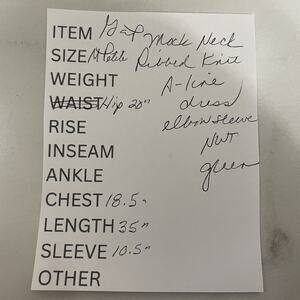 ITEM Gap Mock Neck
SIZE M Petite Ribbed Knit
WEIGHT A-line
WAIST Hip 20" dress
RISE elbow sleeve
INSEAM NWT
ANKLE green
CHEST 18.5"
LENGTH 35"
SLEEVE 10.5"
OTHER